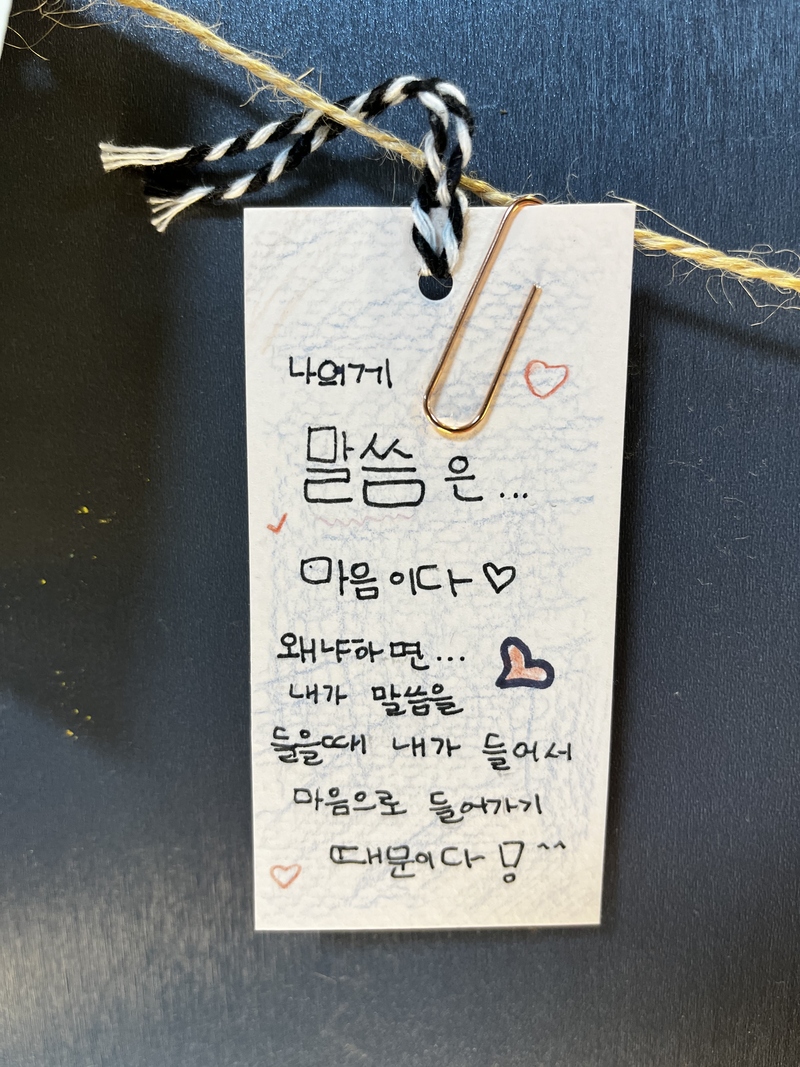 나에게 ♡
말씀은...
마음이다 ♡
왜냐하면...
내가 말씀을
들을때 내가 들어서
마음으로 들어가기
때문이다! ^^